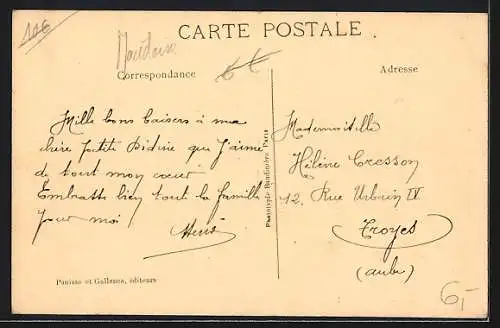 10€
CARTE POSTALE
Correspondance
6€
Adresse
Mille bons baisers à ma
chère petite Didine que J'aime
de tout mon cœur
Embrasse bien tout la famille
pour moi
Mademoiselle
Hélène Cresson
12. Rue Urbain IV
Troyes
(aube)
Phototypie Baudinière Paris
Panisse et Galleazzo, éditeurs
6,-